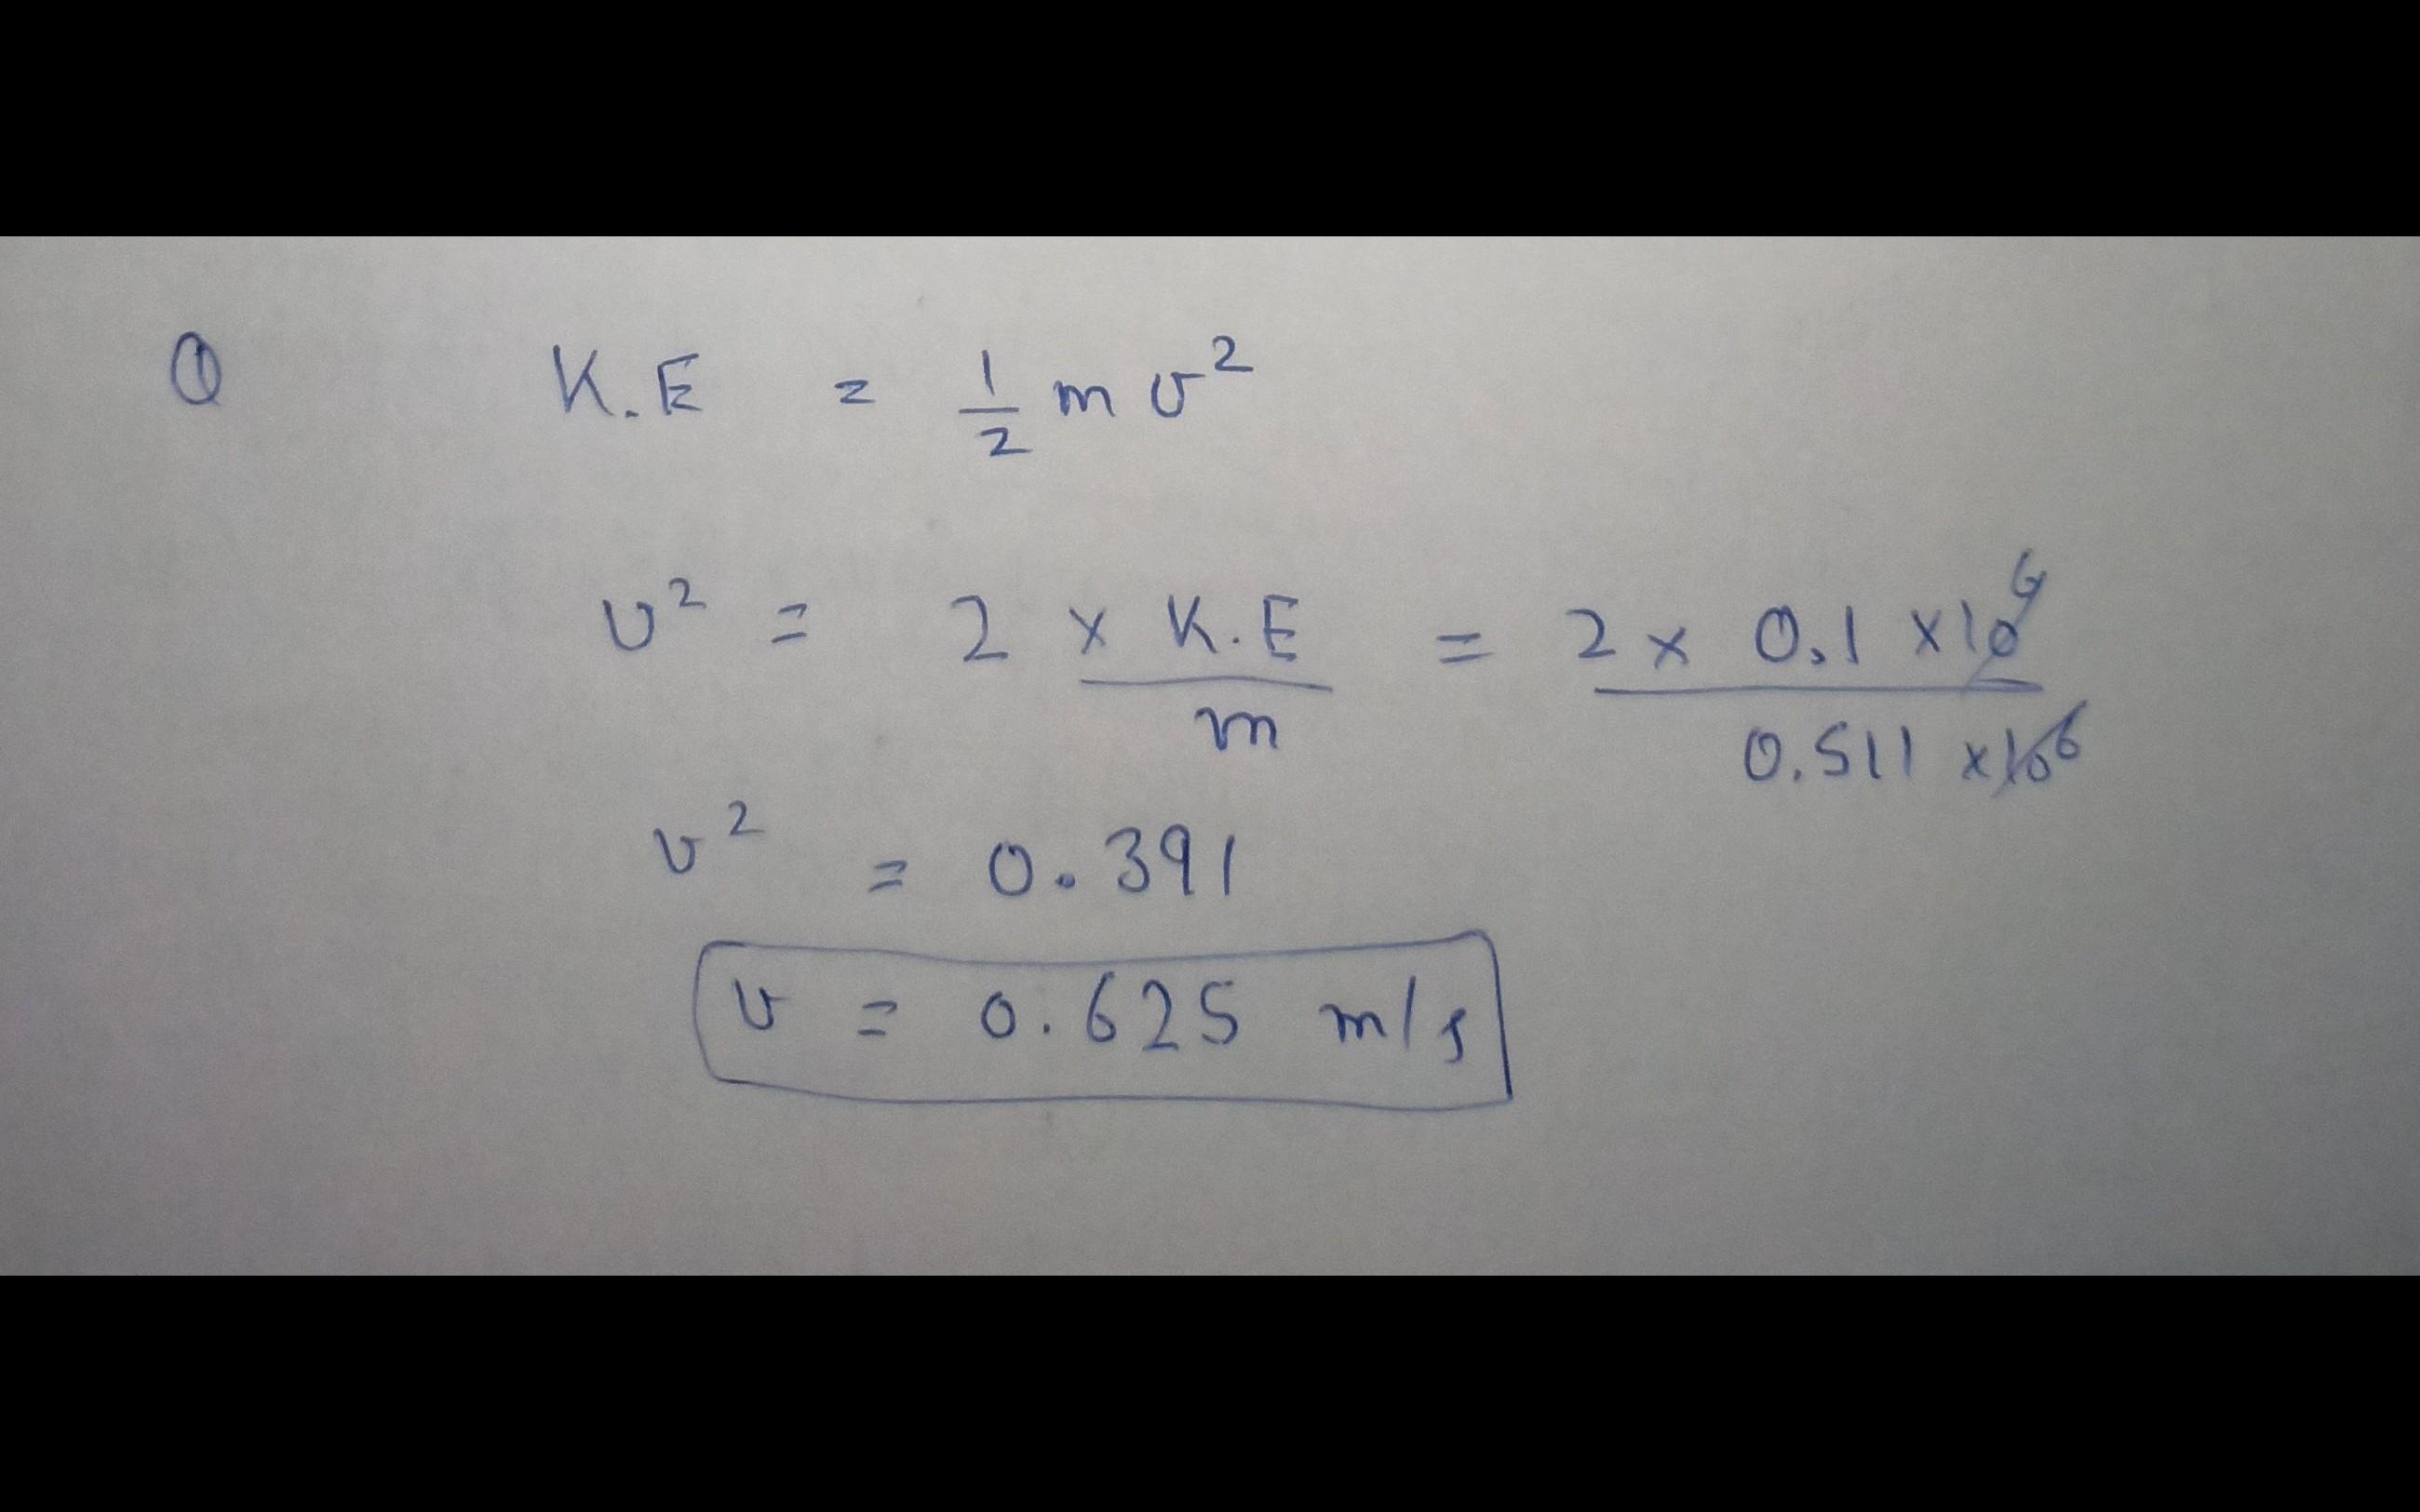 ① K.E = 1/2 m v²
v² = 2 × K.E / m = 2 × 0.1 × 10⁶ / 0.511 × 10⁶
v² = 0.391
v = 0.625 m/s